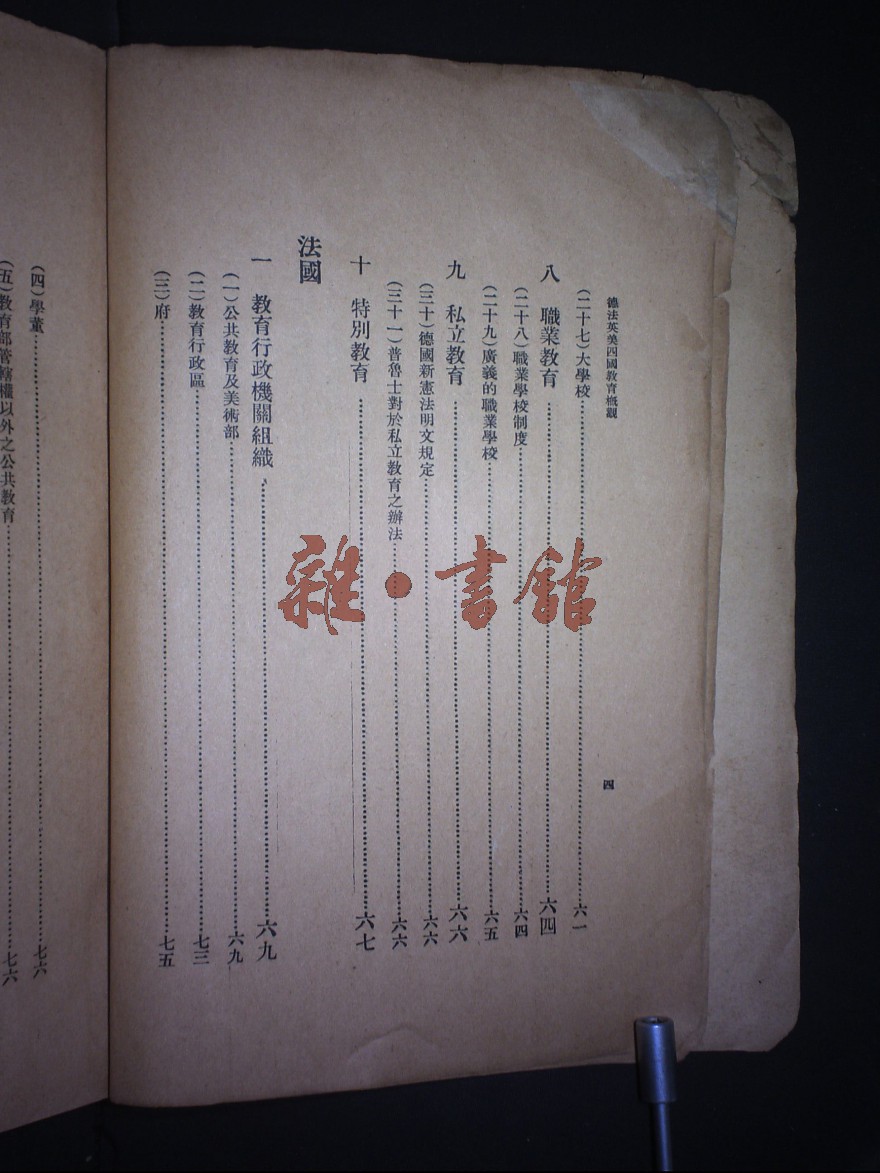 德法英美四國教育概觀
四
(二十七)大學校……六一
八 職業教育……六四
(二十八)職業學校制度……六四
(二十九)廣義的職業學校……六五
九 私立教育……六六
(三十)德國新憲法明文規定……六六
(三十一)普魯士對於私立教育之辦法……六六
十 特別教育……六七
法國
一 教育行政機關組織……六九
(一)公共教育及美術部……六九
(二)教育行政區……七三
(三)府……七五
(四)學董……七六
(五)教育部管轄權以外之公共教育……七六
雜·書館